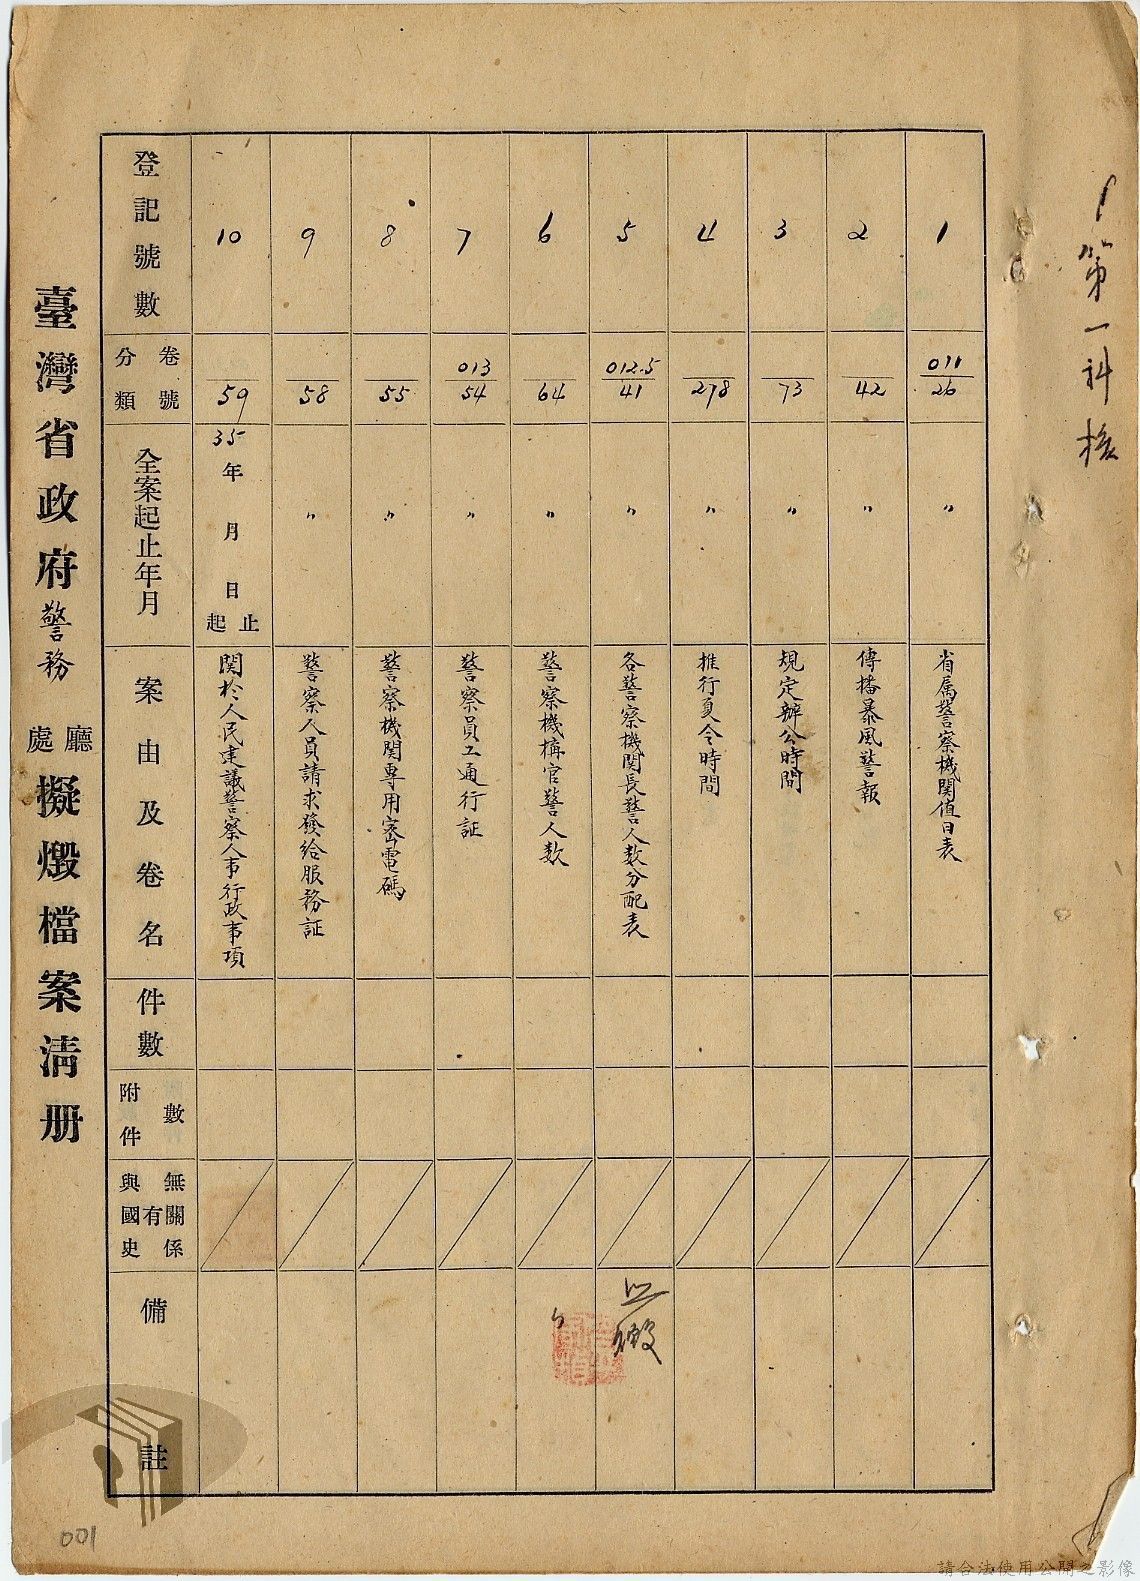 臺灣省政府警務處廳擬燬檔案清册
1第一科核
登記號數
1
2
3
4
5
6
7
8
9
10
分類卷號
011/26
42
73
278
012.5/41
64
013/54
55
58
59
全案起止年月
〃
〃
〃
〃
〃
〃
〃
〃
〃
35年 月 日 起止
案由及卷名
省属警察機関值日表
傳播暴風警報
規定辦公時間
推行夏令時間
各警察機関長警人数分配表
警察機構官警人数
警察員工通行証
警察機関專用密電碼
警察人員請求發給服務証
関於人民建議警察人事行政事項
件數
附件數
與國史有無關係
備註
001
請合法使用公開之影像